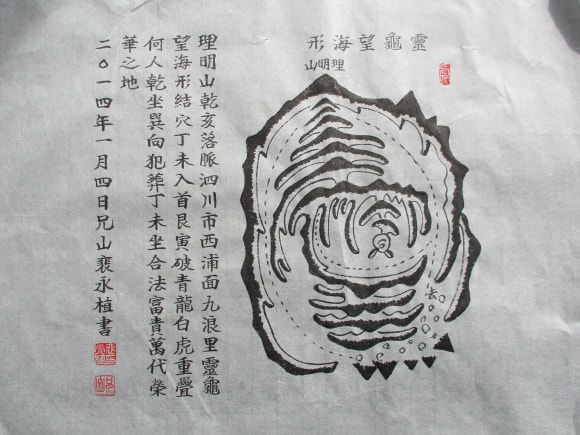 靈龜望海形
理明山
理明山乾亥落脈泗川市西浦面九浪里靈龜
望海形結穴丁未入首艮寅破青龍白虎重疊
何人乾坐巽向犯葬丁未坐合法富貴萬代榮
華之地
二〇一四年一月四日兄山裵永植書